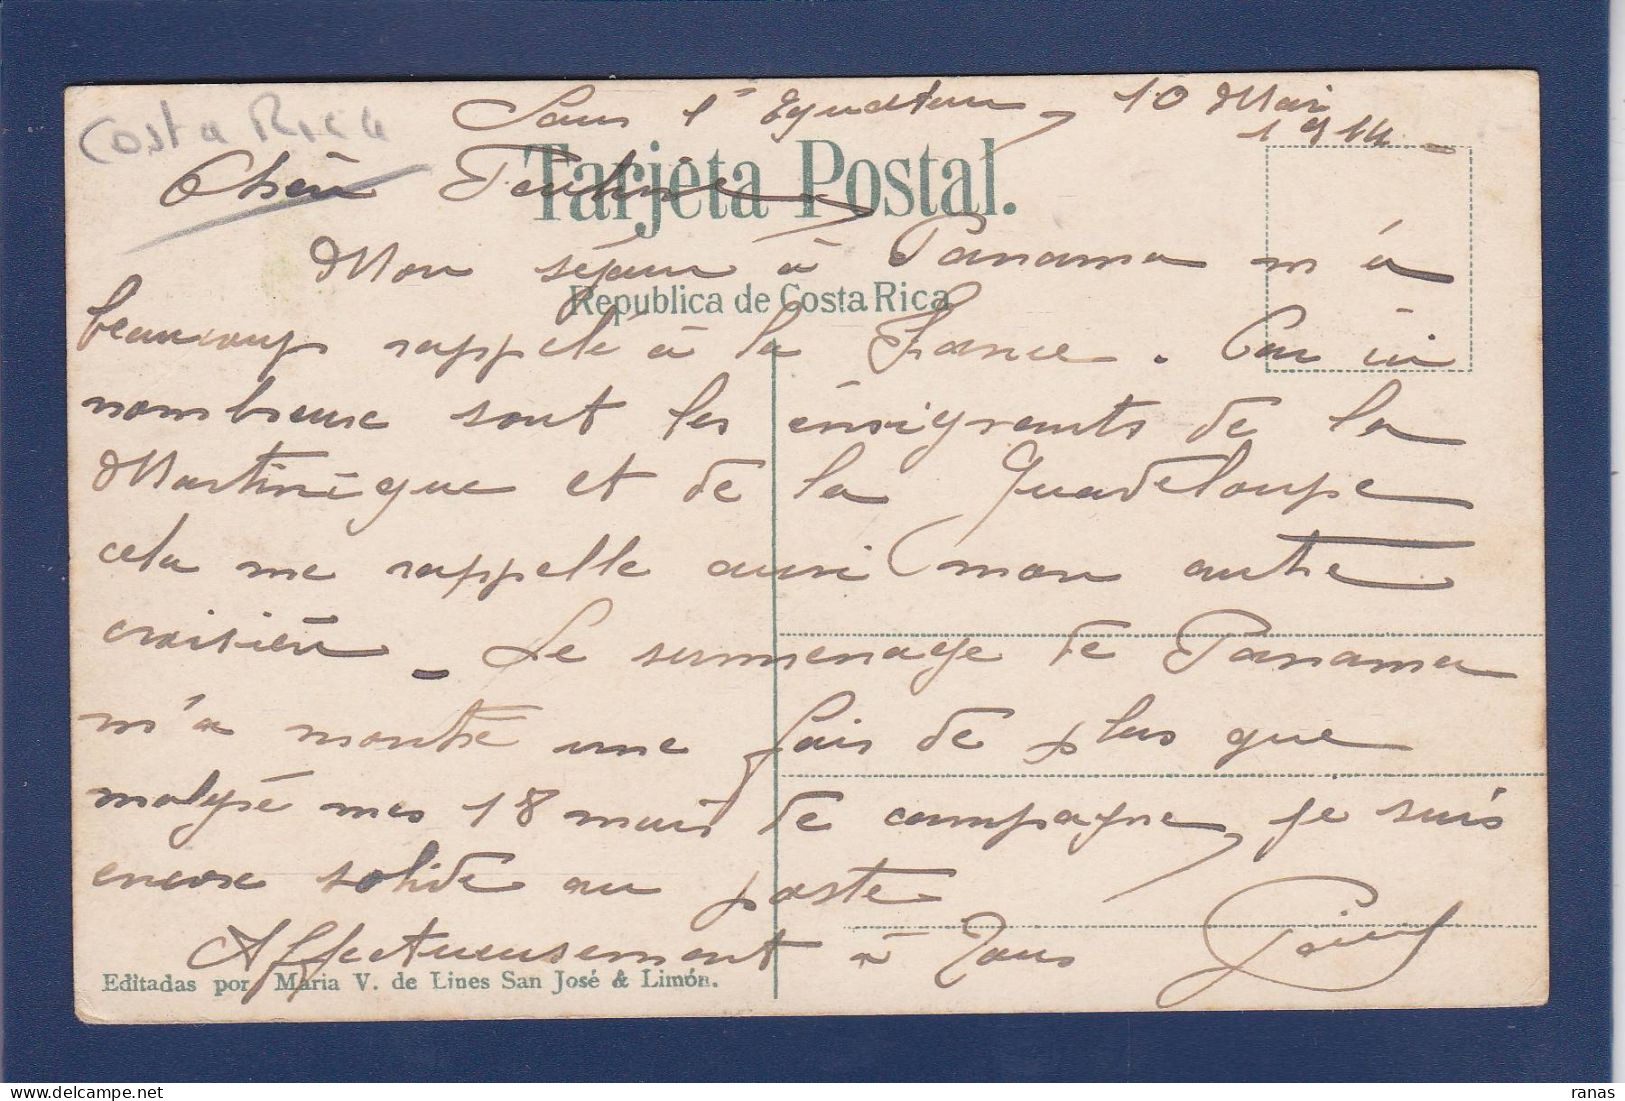 Costa Rica
Sous l'Equateur, 10 Mai
1914
Tarjeta Postal.
Chère
Mon séjour à Panama m'a
Republica de Costa Rica
beaucoup rappelé à la France. Car ici
nombreux sont les émigrants de la
Martinique et de la Guadeloupe
cela me rappelle aussi mon autre
croisière - Le surmenage de Panama
m'a montré une fois de plus que
malgré mes 18 mois de campagne, je suis
encore solide au poste
Affectueusement à Tous
Editadas por Maria V. de Lines San José & Limón.
ranas